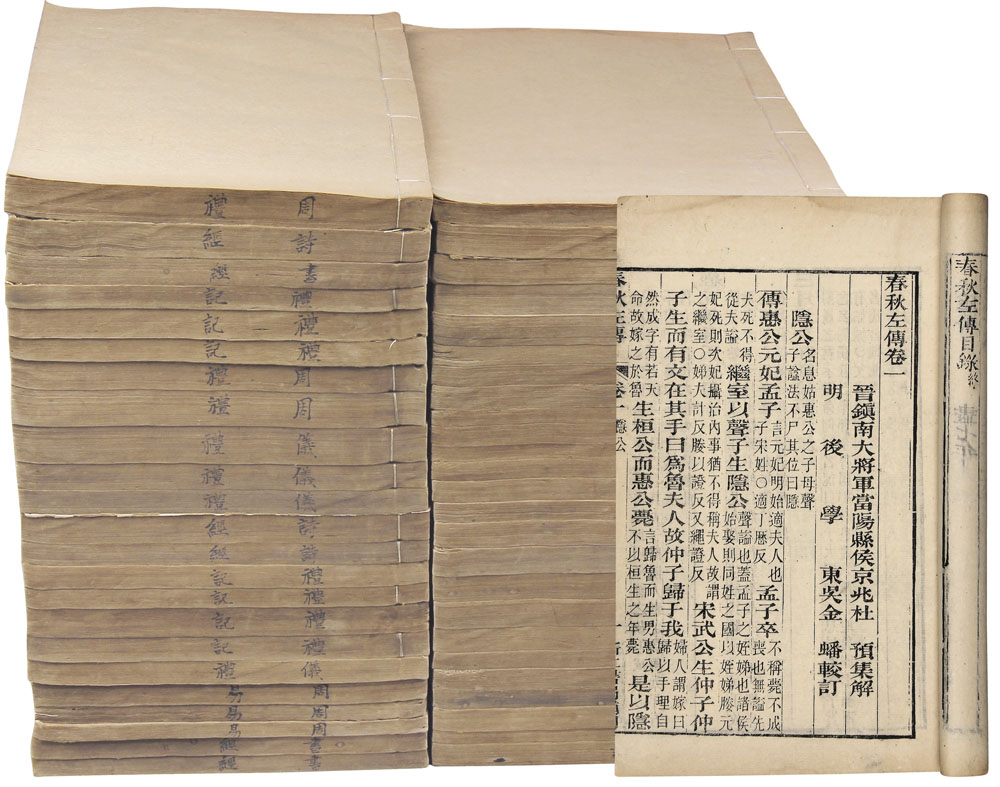 周禮
詩經
書經
禮記
禮記
禮記
周禮
周禮
儀禮
儀禮
詩經
詩經
禮記
禮記
禮記
禮記
儀禮
周易
周易
周易
書經
書經
春秋左傳目錄終
春秋左傳卷一
晉鎮南大將軍當陽縣侯京兆杜 預集解
明 後 學 東吳金 蟠較訂
隱公名息姑惠公之子母聲子諡法不尸其位曰隱
傳惠公元妃孟子言元妃明始適夫人也子宋姓○適丁歷反孟子卒不稱薨不成喪也無諡先
夫死不得從夫諡繼室以聲子生隱公聲諡也蓋孟子之姪娣也諸侯始娶則同姓之國以姪娣媵元
妃死則次妃攝治內事猶不得稱夫人故謂之繼室○娣大計反媵以證反又繩證反宋武公生仲子仲
子生而有文在其手曰爲魯夫人故仲子歸于我婦人謂嫁曰歸以手理自
然成字有若天命故嫁之於魯生桓公而惠公薨言歸魯而生男惠公不以桓生之年薨是以隱
春秋左傳 卷一 隱公